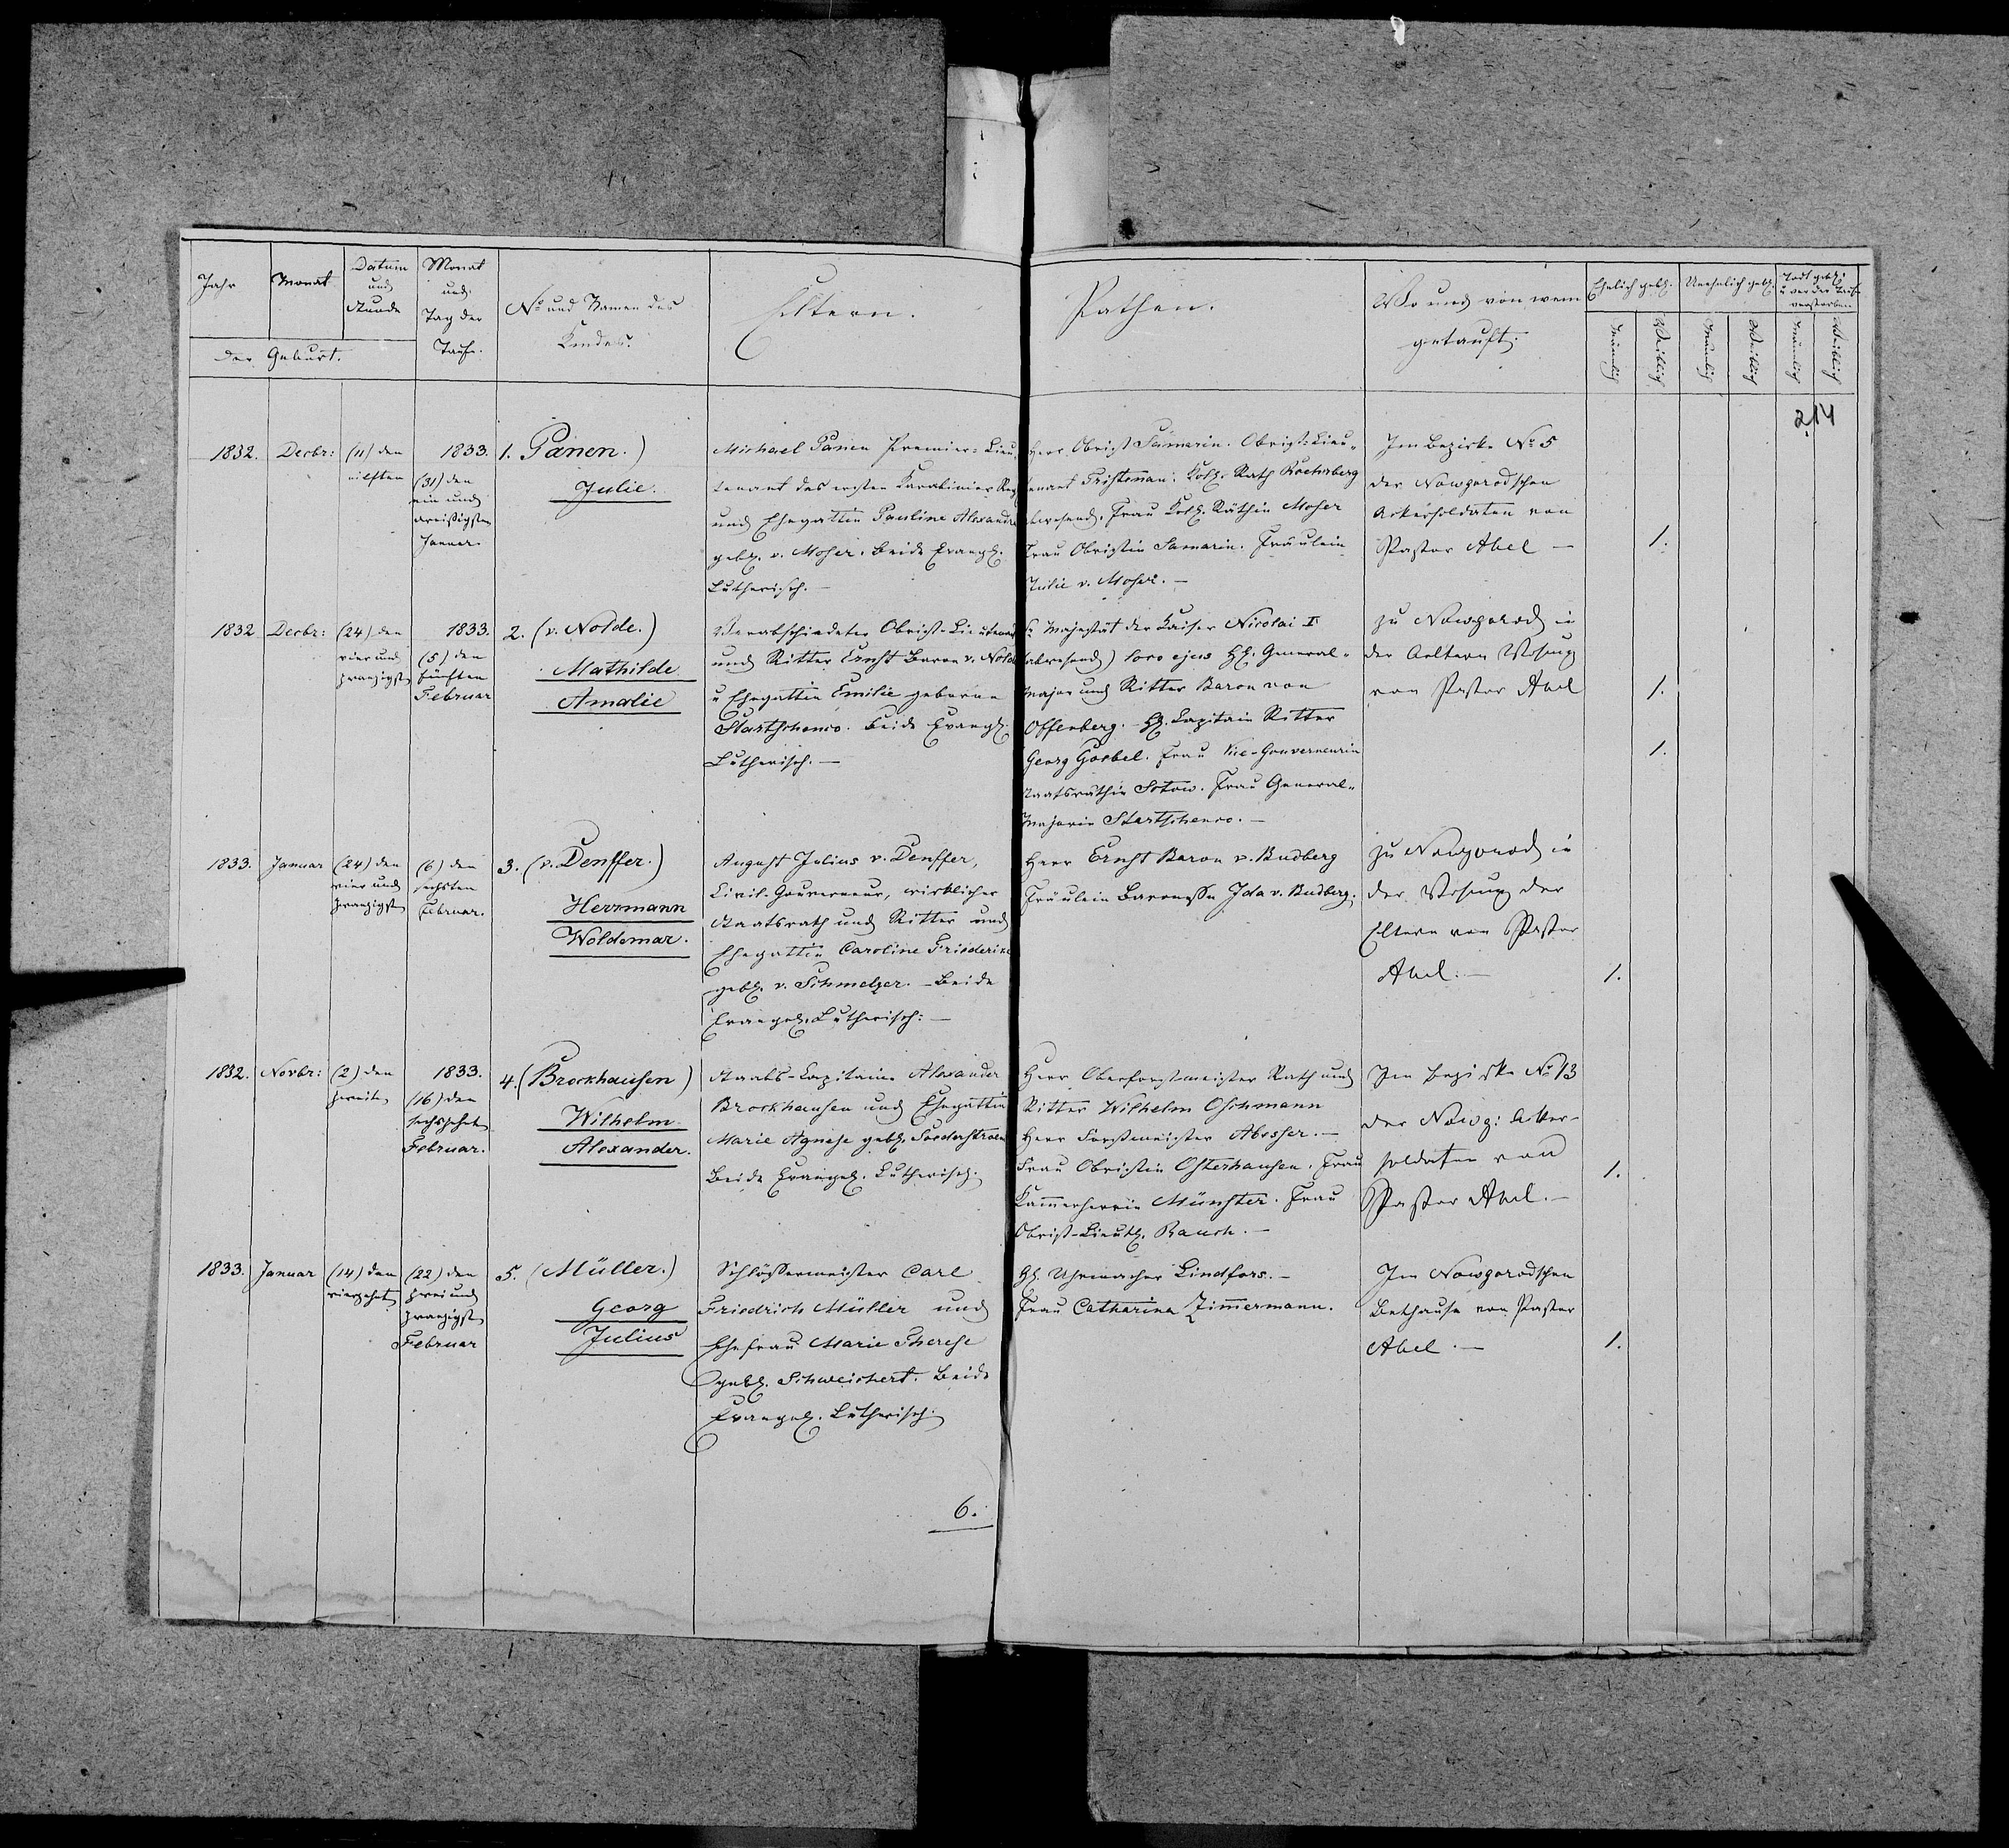 Jahr
Monat
Datum
und
Stunde
der Geburt.
Monat
und
Tag der
Taufe.
No und Namen des
Kindes.
Eltern.
Pathen.
Wo und von wem
getauft.
Ehelich geb.
Unehelich geb.
Todt geb.
u vor der Taufe
verstorben
Männlich
Weiblich
Männlich
Weiblich
Männlich
Weiblich
214
1832.
Decbr:
(11) den
eilften
1833.
(31) den
ein und
dreißigsten
Januar.
1. Panen.)
Julie.
Michael Panen Premier-Lieu-
tenant des ersten Karabinier Reg
und Ehegattin Pauline Alexandra
geb. v. Moser. beide Evangel.
Lutherisch. —
Herr Obrist Samarin. Obrist-Lieu-
tenant Tristenan: Koll. Rath Kochsberg
abwesend. Frau Koll. Räthin Moser
Frau Obristin Samarin. Fräulein
Julie v. Moser. —
Im Bezirke No 5
der Nowgorodschen
Ackersoldaten von
Pastor Abel —
1.
1832
Decbr:
(24) den
vier und
zwanzigst
1833.
(5) den
fünften
Februar
2. (v. Nolde.)
Mathilde
Amalie
Verabschiedeter Obrist-Lieutenant
und Ritter Ernst Baron v. Nolde
u Ehegattin Emilie geborne
Startschenco. Beide Evangel.
Lutherisch. —
Sr Majestät der Kaiser Nicolai I
(abwesend) loco ejus H. General-
major und Ritter Baron von
Offenberg. H. Capitain Ritter
Georg Goebel. Frau Vice-Gouverneurin
Staatsräthin Sotow. Frau General-
Majorin Startschenco. —
zu Nowgorod in
der Aeltern Wohnung
von Pastor Abel
1.
1.
1833.
Januar
(24) den
vier und
zwanzigst
(6) den
sechsten
Februar.
3. (v. Denffer.)
Herrmann
Woldemar.
August Julius v. Denffer,
Civil-Gouverneur, wirklicher
Staatsrath und Ritter und
Ehegattin Caroline Friederike
geb. v. Schmelzer. — Beide
Evangel. Lutherisch: —
Herr Ernst Baron v. Budberg
Fräulein Baronesse Ida v. Budberg.
zu Nowgorod in
der Wohnung der
Eltern von Pastor
Abel. —
1.
1832.
Novbr:
(2) den
zweiten
1833.
(16) den
sechszehnt
Februar.
4. (Brockhausen)
Wilhelm
Alexander.
Staabs-Capitaine Alexander
Brockhausen und Ehegattin
Marie Agnese geb. Soederstroem
Beide Evangel. Lutherisch.
Herr Oberforstmeister Rath und
Ritter Wilhelm Oschmann
Herr Forstmeister Abesser. —
Frau Obristin Osterhausen. Frau
Kammerherrin Münster. Frau
Obrist-Lieut. Rauch. —
Im Bezirke No 13
der Nowg: Acker-
soldaten von
Pastor Abel. —
1.
1833.
Januar
(14) den
vierzehnt
(22) den
zwei und
zwanzigst
Februar
5. (Müller.)
Georg
Julius
Schlössermeister Carl
Friedrich Müller und
Ehefrau Marie Therese
geb. Schweichert. Beide
Evangel. Lutherisch
H. Uhrmacher Lindfors. —
Frau Catharina Zimmermann.
Im Nowgorodschen
Bethause von Pastor
Abel. —
1.
6.